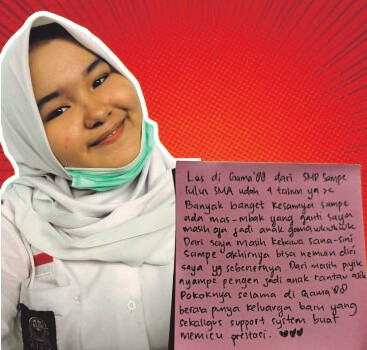 Les di Gama'88 dari SMP sampe
lulus SMA udah 4 tahun ya ><
Banyak banget kesannya sampe
ada mas-mbak yang ganti saya
masih aja jadi anak gama wkwkwk
Dari saya masih kebawa sana-sini
sampe akhirnya bisa nemuin diri
saya yg sebenernya. Dari masih
nyampe pengen jadi anak rantau
Pokoknya selama di Gama'88
berasa punya keluarga baru yang
sekaligus support system buat
memicu prestasi.